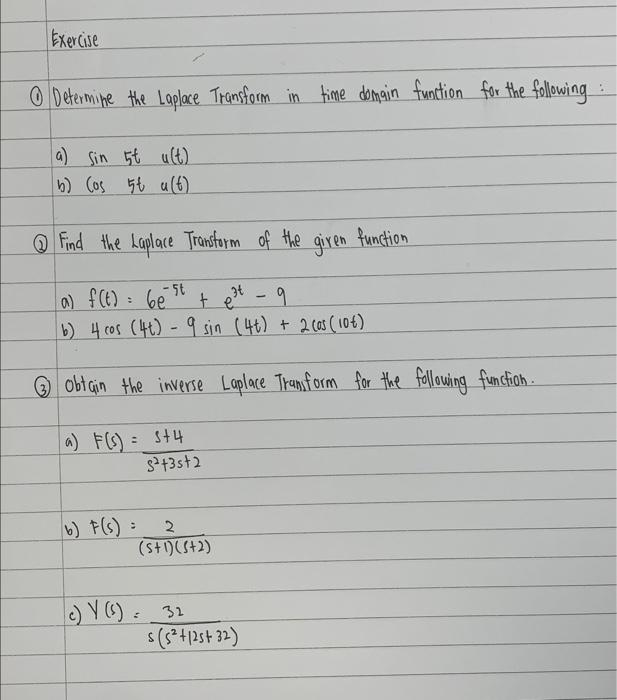 Exercise
① Determine the Laplace Transform in time domain function for the following :
a) sin 5t u(t)
b) Cos 5t u(t)
② Find the Laplace Transform of the given function
a) f(t) = 6e⁻⁵ᵗ + e³ᵗ - 9
b) 4 cos (4t) - 9 sin (4t) + 2 cos (10t)
③ Obtain the inverse Laplace Transform for the following function.
a) F(s) = s+4
s²+3s+2
b) F(s) = 2
(s+1)(s+2)
c) Y(s) = 32
s(s²+12s+32)